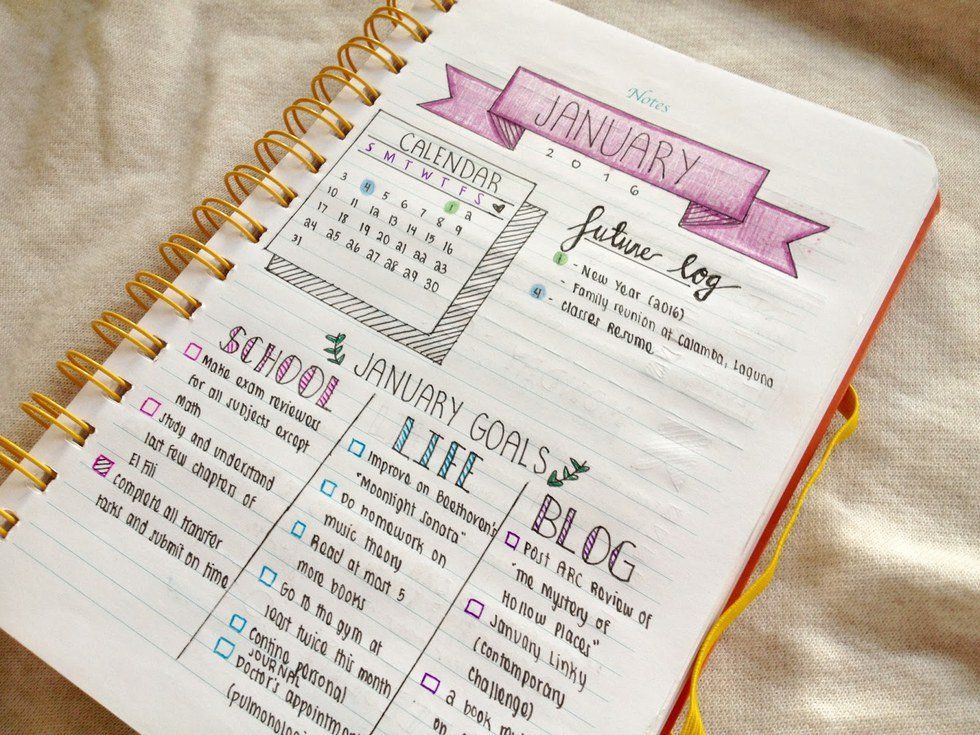 Notes
JANUARY
2016
CALENDAR
S M T W T F S
1 2
3 4 5 6 7 8 9
10 11 12 13 14 15 16
17 18 19 20 21 22 23
24 25 26 27 28 29 30
31
future log
1 - New Year (2016)
- Family reunion at Calamba, Laguna
4 - Classes Resume
JANUARY GOALS
SCHOOL
Make exam reviewers
for all subjects except
math
Study and understand
last few chapters of
El Fili
Complete all transfer
tasks and submit on time
LIFE
Improve on Beethoven's
"Moonlight Sonata"
Do homework on
music theory
Read at most 5
more books
Go to the gym at
least twice this month
personal
JOURNAL
Doctor's appointment
BLOG
Post ARC Review of
"The Mystery of
Hollow Places"
January Linky
(contemporary
challenge)
a book
on